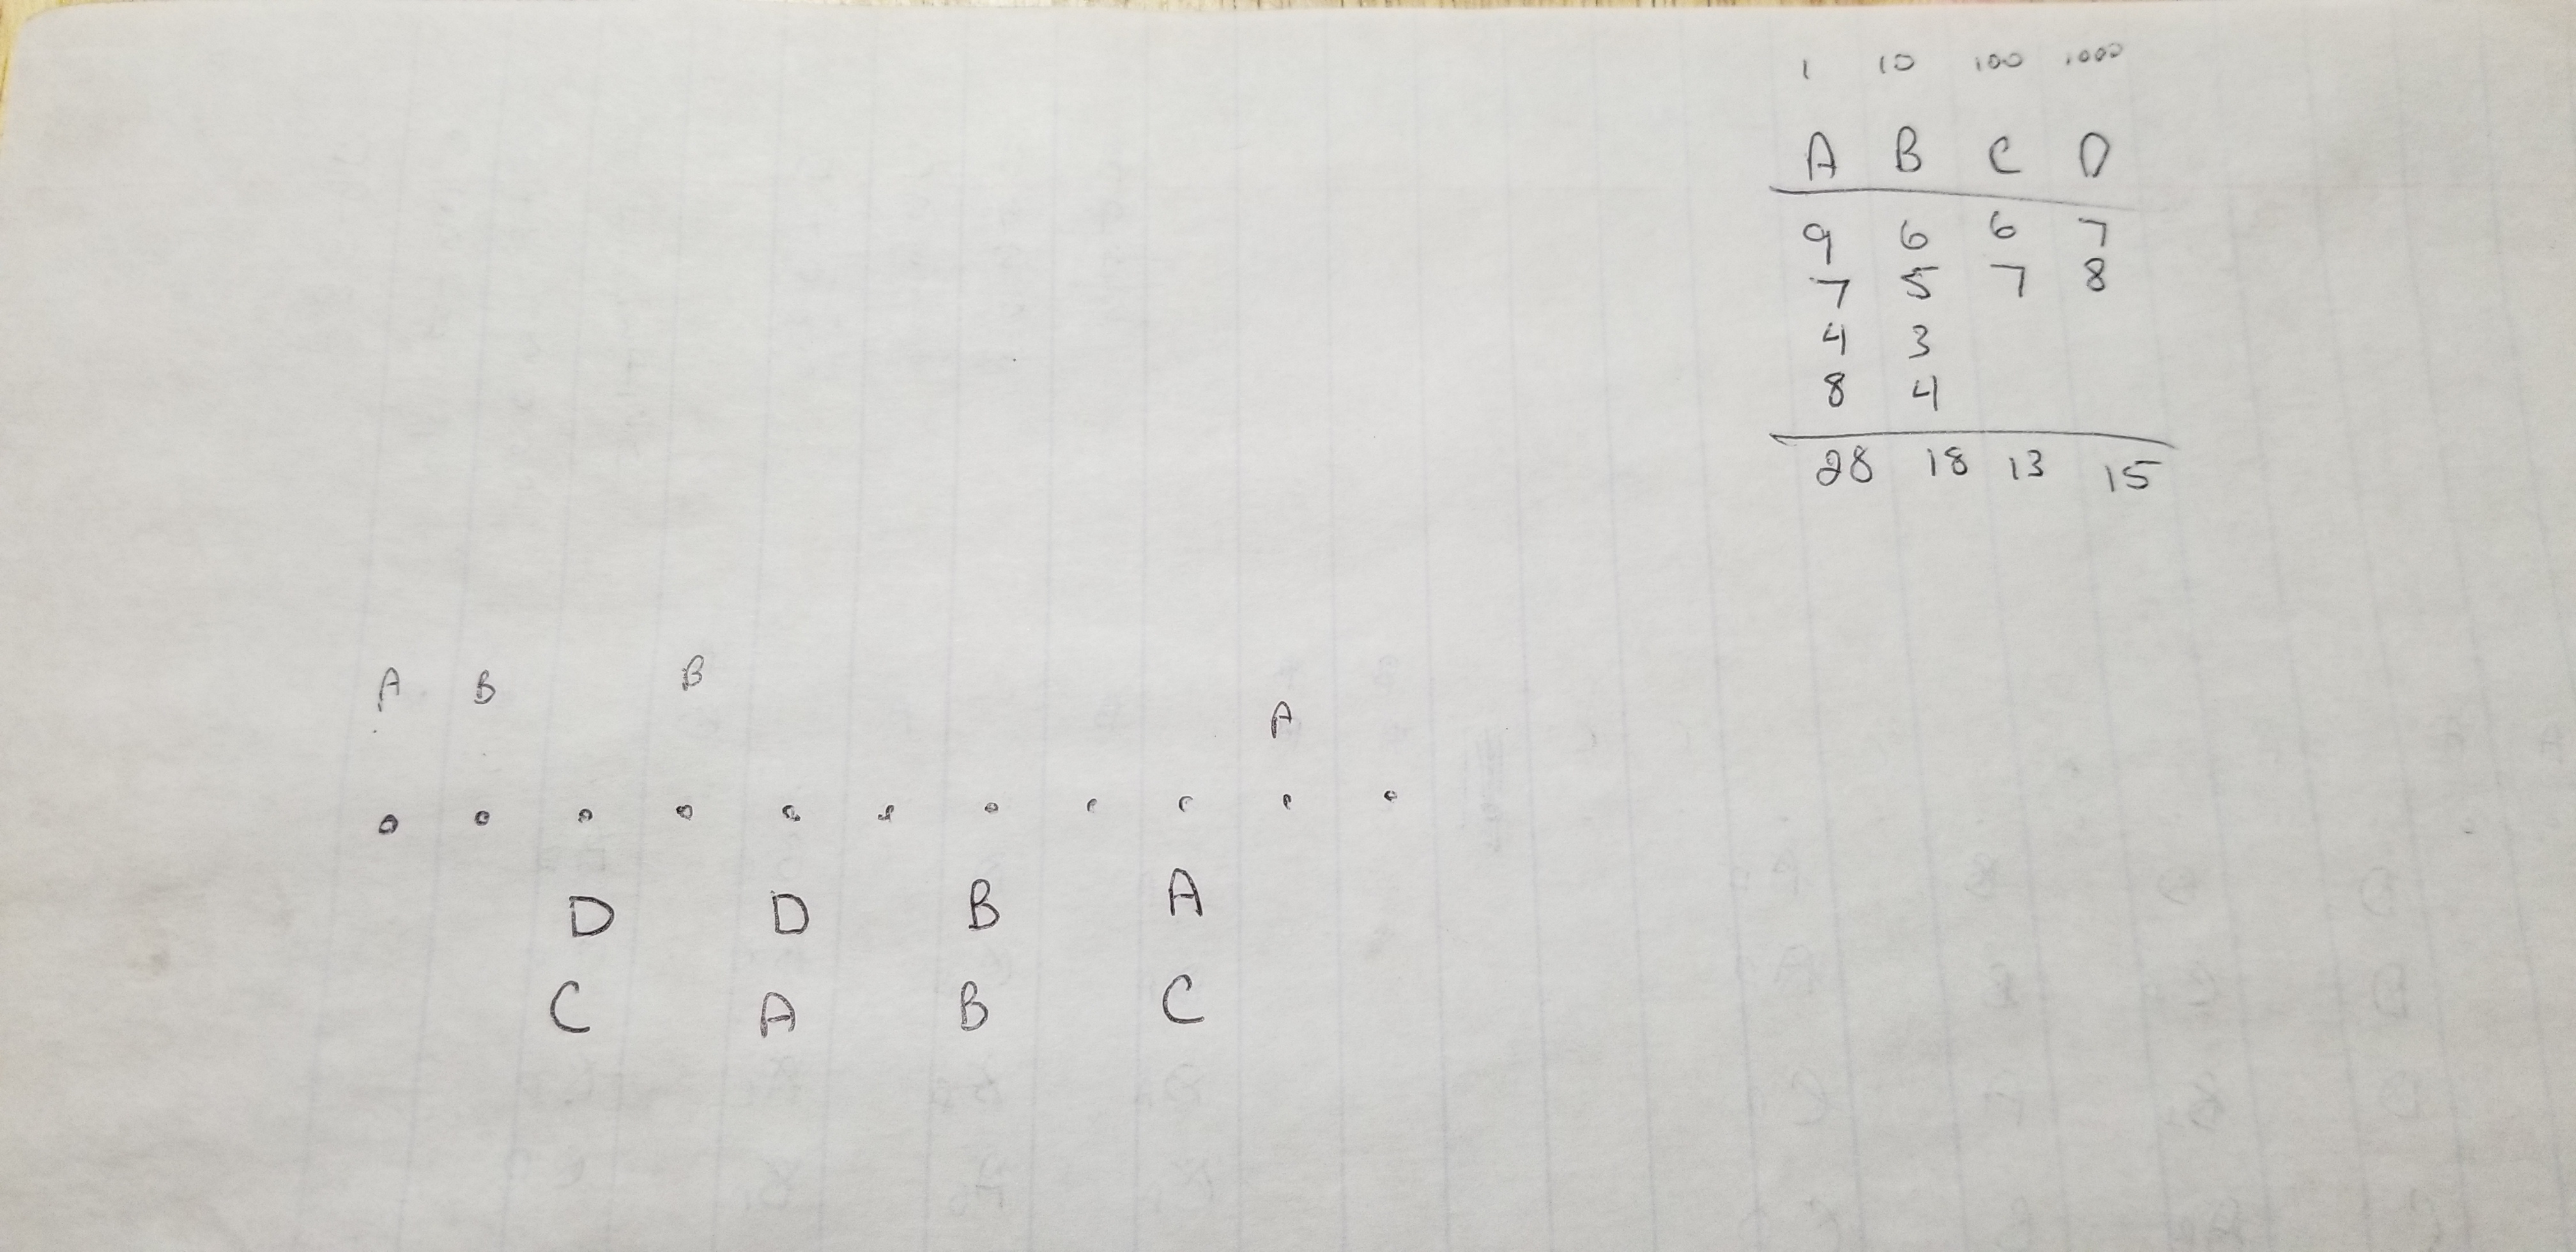 1 10 100 1000
A B C D
9 6 6 7
7 5 7 8
4 3
8 4
28 18 13 15
A B B A
D D B A
C A B C